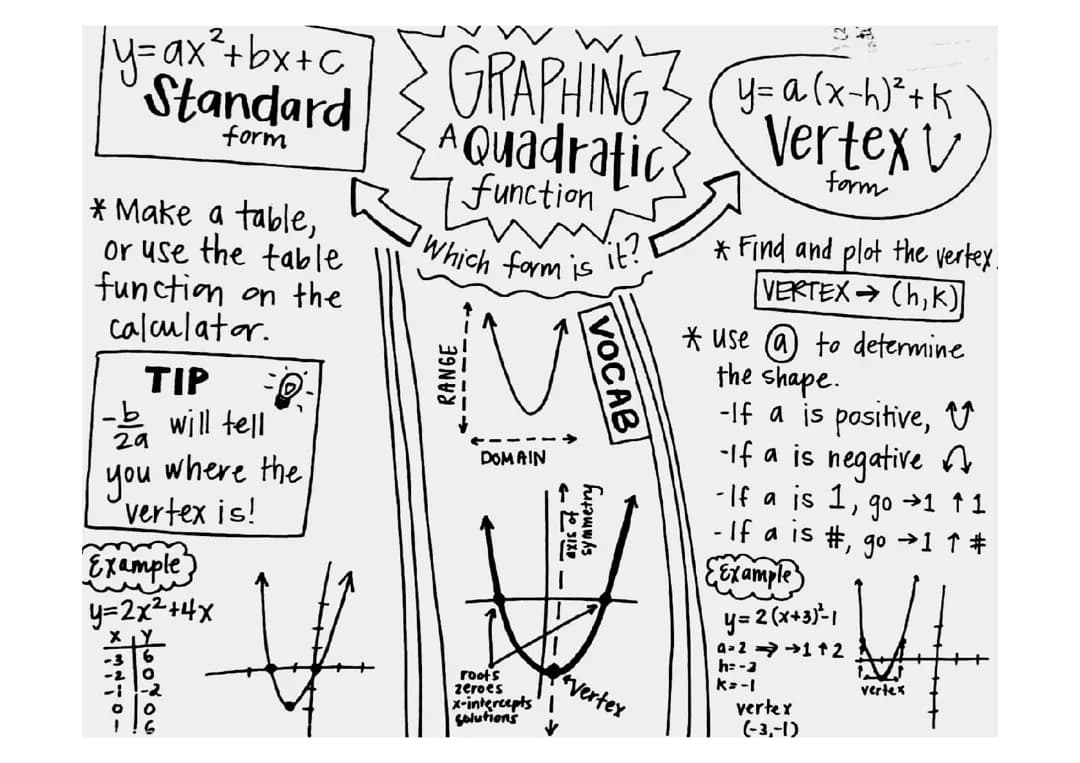 y=ax²+bx+c
Standard
form
GRAPHING
A Quadratic
function
y= a(x-h)²+k
Vertex
form
Which form is it?
* Make a table,
or use the table
function on the
calculator.
TIP
-b/2a will tell
you where the
vertex is!
Example
y=2x²+4x
X Y
-3 6
-2 0
-1 -2
0 0
1 6
VOCAB
RANGE
DOMAIN
axis of
symmetry
roots
zeroes
x-intercepts
solutions
Vertex
* Find and plot the vertex.
VERTEX → (h,k)
* use ⓐ to determine
the shape.
-If a is positive,
-If a is negative
-If a is 1, go →1 ↑1
-If a is #, go →1 ↑ #
Example
y= 2(x+3)²-1
a=2 ⇒ →1 ↑2
h=-3
k=-1
vertex
(-3,-1)
vertex